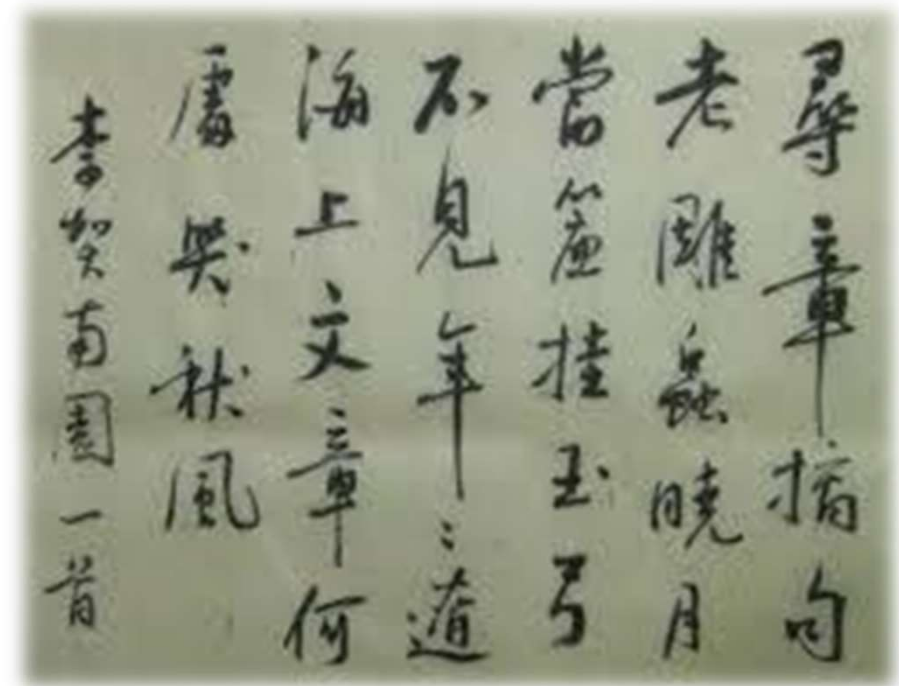 尋章摘句
老雕蟲曉月
當簾挂玉弓
不見年〻遼
海上文章何
處哭秋風
李賀南園一首